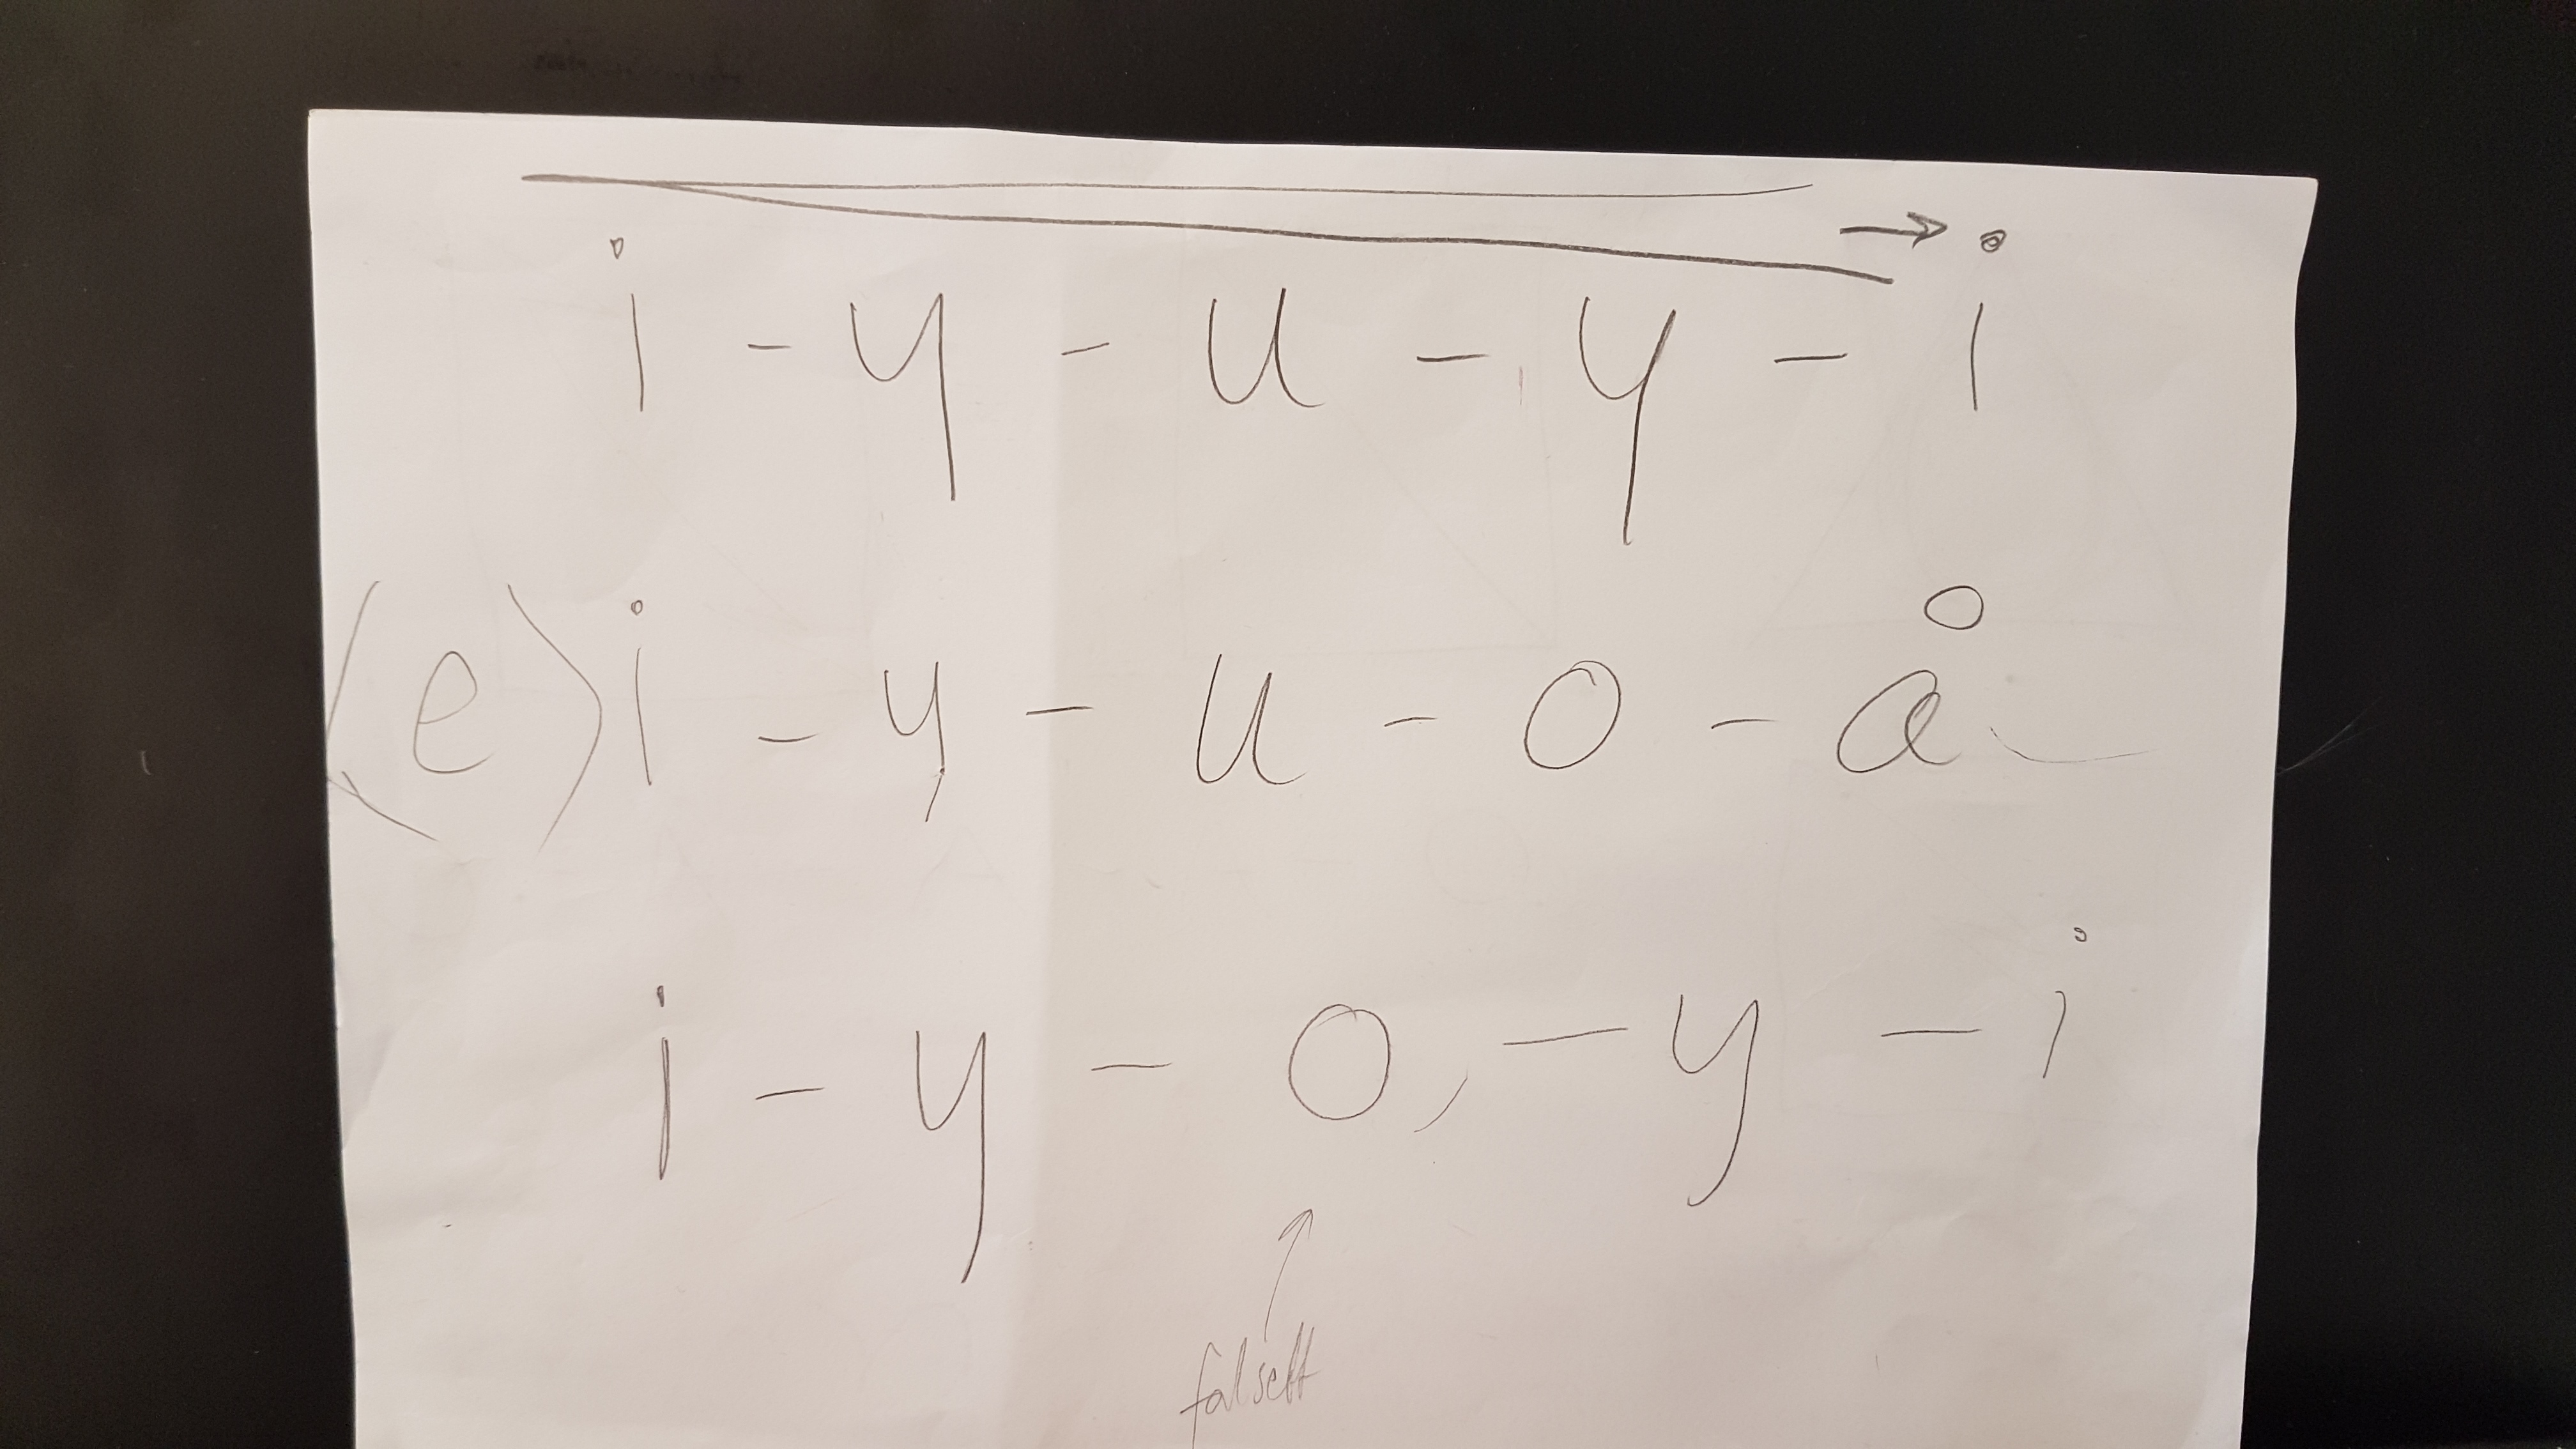 →
i - y - u - y - i
(e) i - y - u - o - å
i - y - o, - y - i
↑
falsett